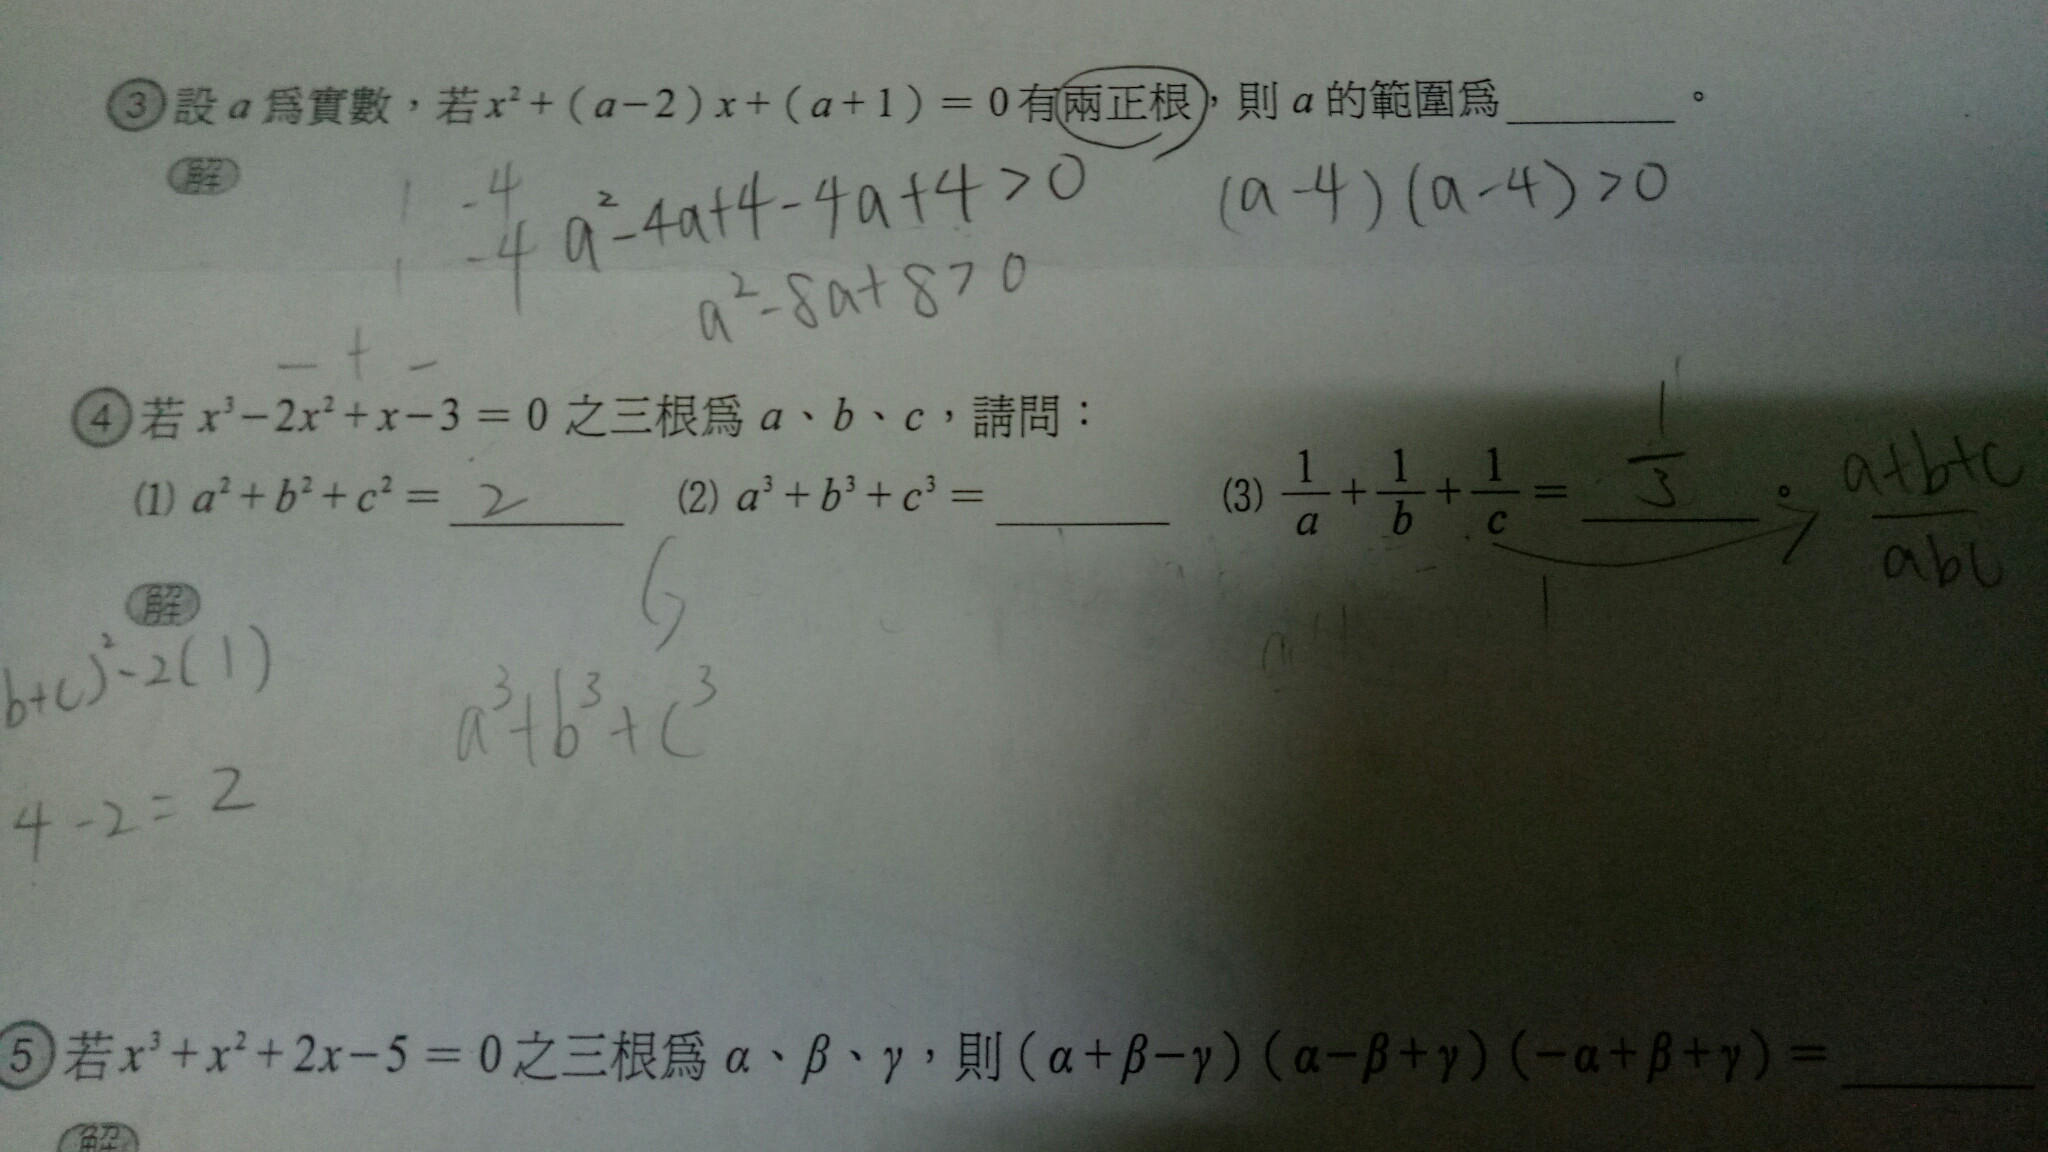 ③設 a 爲實數，若 x²+(a-2)x+(a+1) = 0 有兩正根，則 a 的範圍爲______。
解
1 -4
1 -4
a²-4a+4-4a+4>0
(a-4)(a-4)>0
a²-8a+8>0
- + -
④若 x³-2x²+x-3 = 0 之三根爲 a、b、c，請問：
(1) a²+b²+c² = 2 (2) a³+b³+c³ = ______ (3) 1/a+1/b+1/c = 1/3 。 a+b+c/abc
解
b+c)²-2(1)
a³+b³+c³
4-2=2
⑤若 x³+x²+2x-5 = 0 之三根爲 α、β、γ，則(α+β-γ)(α-β+γ)(-α+β+γ) = ______
解